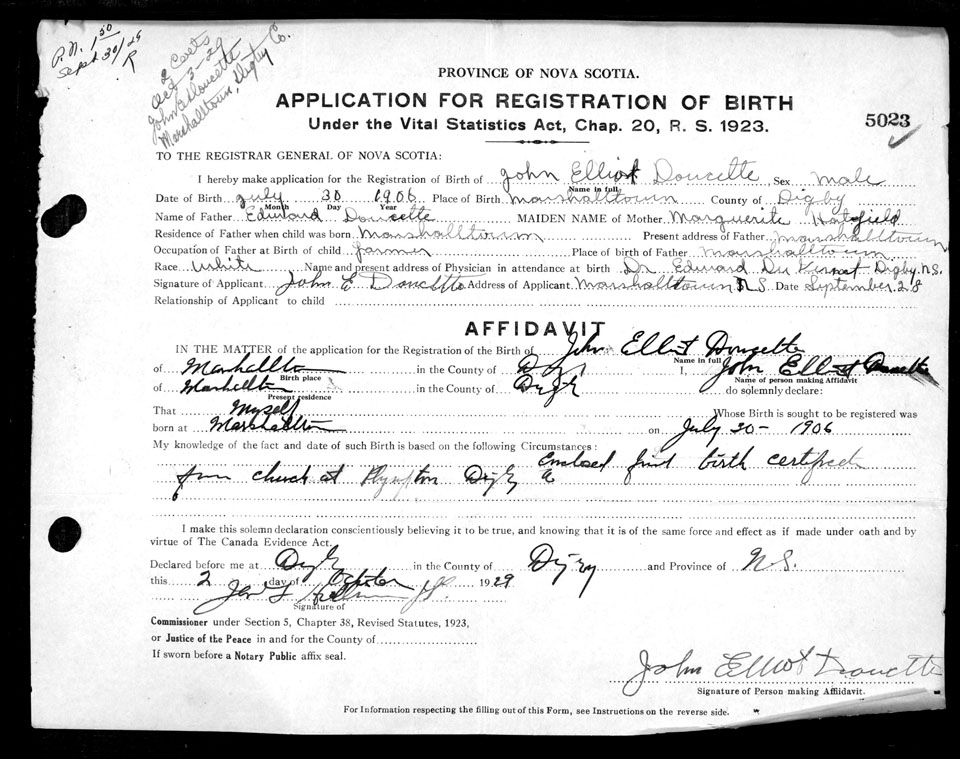 P.N. 1 50
Sept 30/29
R
2 Certs
Oct 3-29
John E Doucette
Marshalltown, Digby Co.
PROVINCE OF NOVA SCOTIA.
APPLICATION FOR REGISTRATION OF BIRTH
Under the Vital Statistics Act, Chap. 20, R. S. 1923.
5023
TO THE REGISTRAR GENERAL OF NOVA SCOTIA:
I hereby make application for the Registration of Birth of John Elliot Doucette Sex Male
Name in full
Date of Birth July 30 1906 Place of Birth Marshalltown County of Digby
Month Day Year
Name of Father Edward Doucette MAIDEN NAME of Mother Marguerite Hatfield
Residence of Father when child was born Marshalltown Present address of Father Marshalltown
Occupation of Father at Birth of child farmer Place of birth of Father Marshalltown
Race White Name and present address of Physician in attendance at birth Dr Edward Du Digby N.S.
Signature of Applicant John E Doucette Address of Applicant Marshalltown N S Date September 28
Relationship of Applicant to child
AFFIDAVIT
IN THE MATTER of the application for the Registration of the Birth of John Elliot Doucette
Name in full
of Marshallton in the County of Digby I, John Elliot Doucette
Birth place
Name of person making Affidavit
of Marshallton in the County of Digby do solemnly declare:
Present residence
That Myself Whose Birth is sought to be registered was
born at Marshallton on July 30- 1906
My knowledge of the fact and date of such Birth is based on the following Circumstances:
Enclosed find birth certificate
from church at Plympton Digby Co
I make this solemn declaration conscientiously believing it to be true, and knowing that it is of the same force and effect as if made under oath and by
virtue of The Canada Evidence Act.
Declared before me at Digby in the County of Digby and Province of N.S.
this 2 day of October 1929
Signature of
Commissioner under Section 5, Chapter 38, Revised Statutes, 1923,
or Justice of the Peace in and for the County of
If sworn before a Notary Public affix seal.
John Elliot Doucette
Signature of Person making Affidavit.
For Information respecting the filling out of this Form, see Instructions on the reverse side.